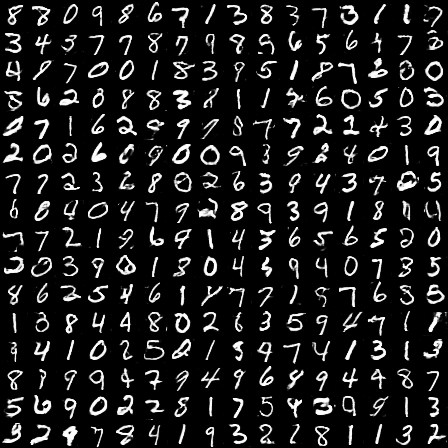 8 8 0 9 8 6 7 1 3 8 3 7 3 1 1
3 4 3 7 7 8 7 9 8 9 6 5 6 4 7 3
4 9 7 0 0 1 8 3 9 5 1 8 7 6 0 0
8 6 2 8 8 8 3 8 1 1 4 6 0 5 0 3
0 7 1 6 2 8 9 9 8 7 7 2 2 4 3 0
2 0 2 6 0 9 0 0 9 3 9 2 4 0 1 9
7 7 2 3 2 8 0 2 6 3 9 4 3 7 0 5
6 8 9 0 4 7 9 8 9 3 9 1 8 9 4
7 7 2 1 9 6 9 1 4 3 6 5 6 5 2 0
3 0 3 9 8 1 8 0 4 5 9 4 0 7 8 5
8 6 2 5 4 6 1 4 7 7 1 8 7 6 5 5
1 3 8 4 4 8 0 2 6 3 5 9 4 7 1 1
9 4 1 0 2 5 8 1 5 4 7 4 1 3 1 3
8 7 9 9 4 7 9 4 9 6 8 9 4 4 8 7
5 6 9 0 2 2 8 1 7 5 4 3 0 9 1 3
3 2 9 7 8 4 1 9 3 2 1 8 1 1 3 2